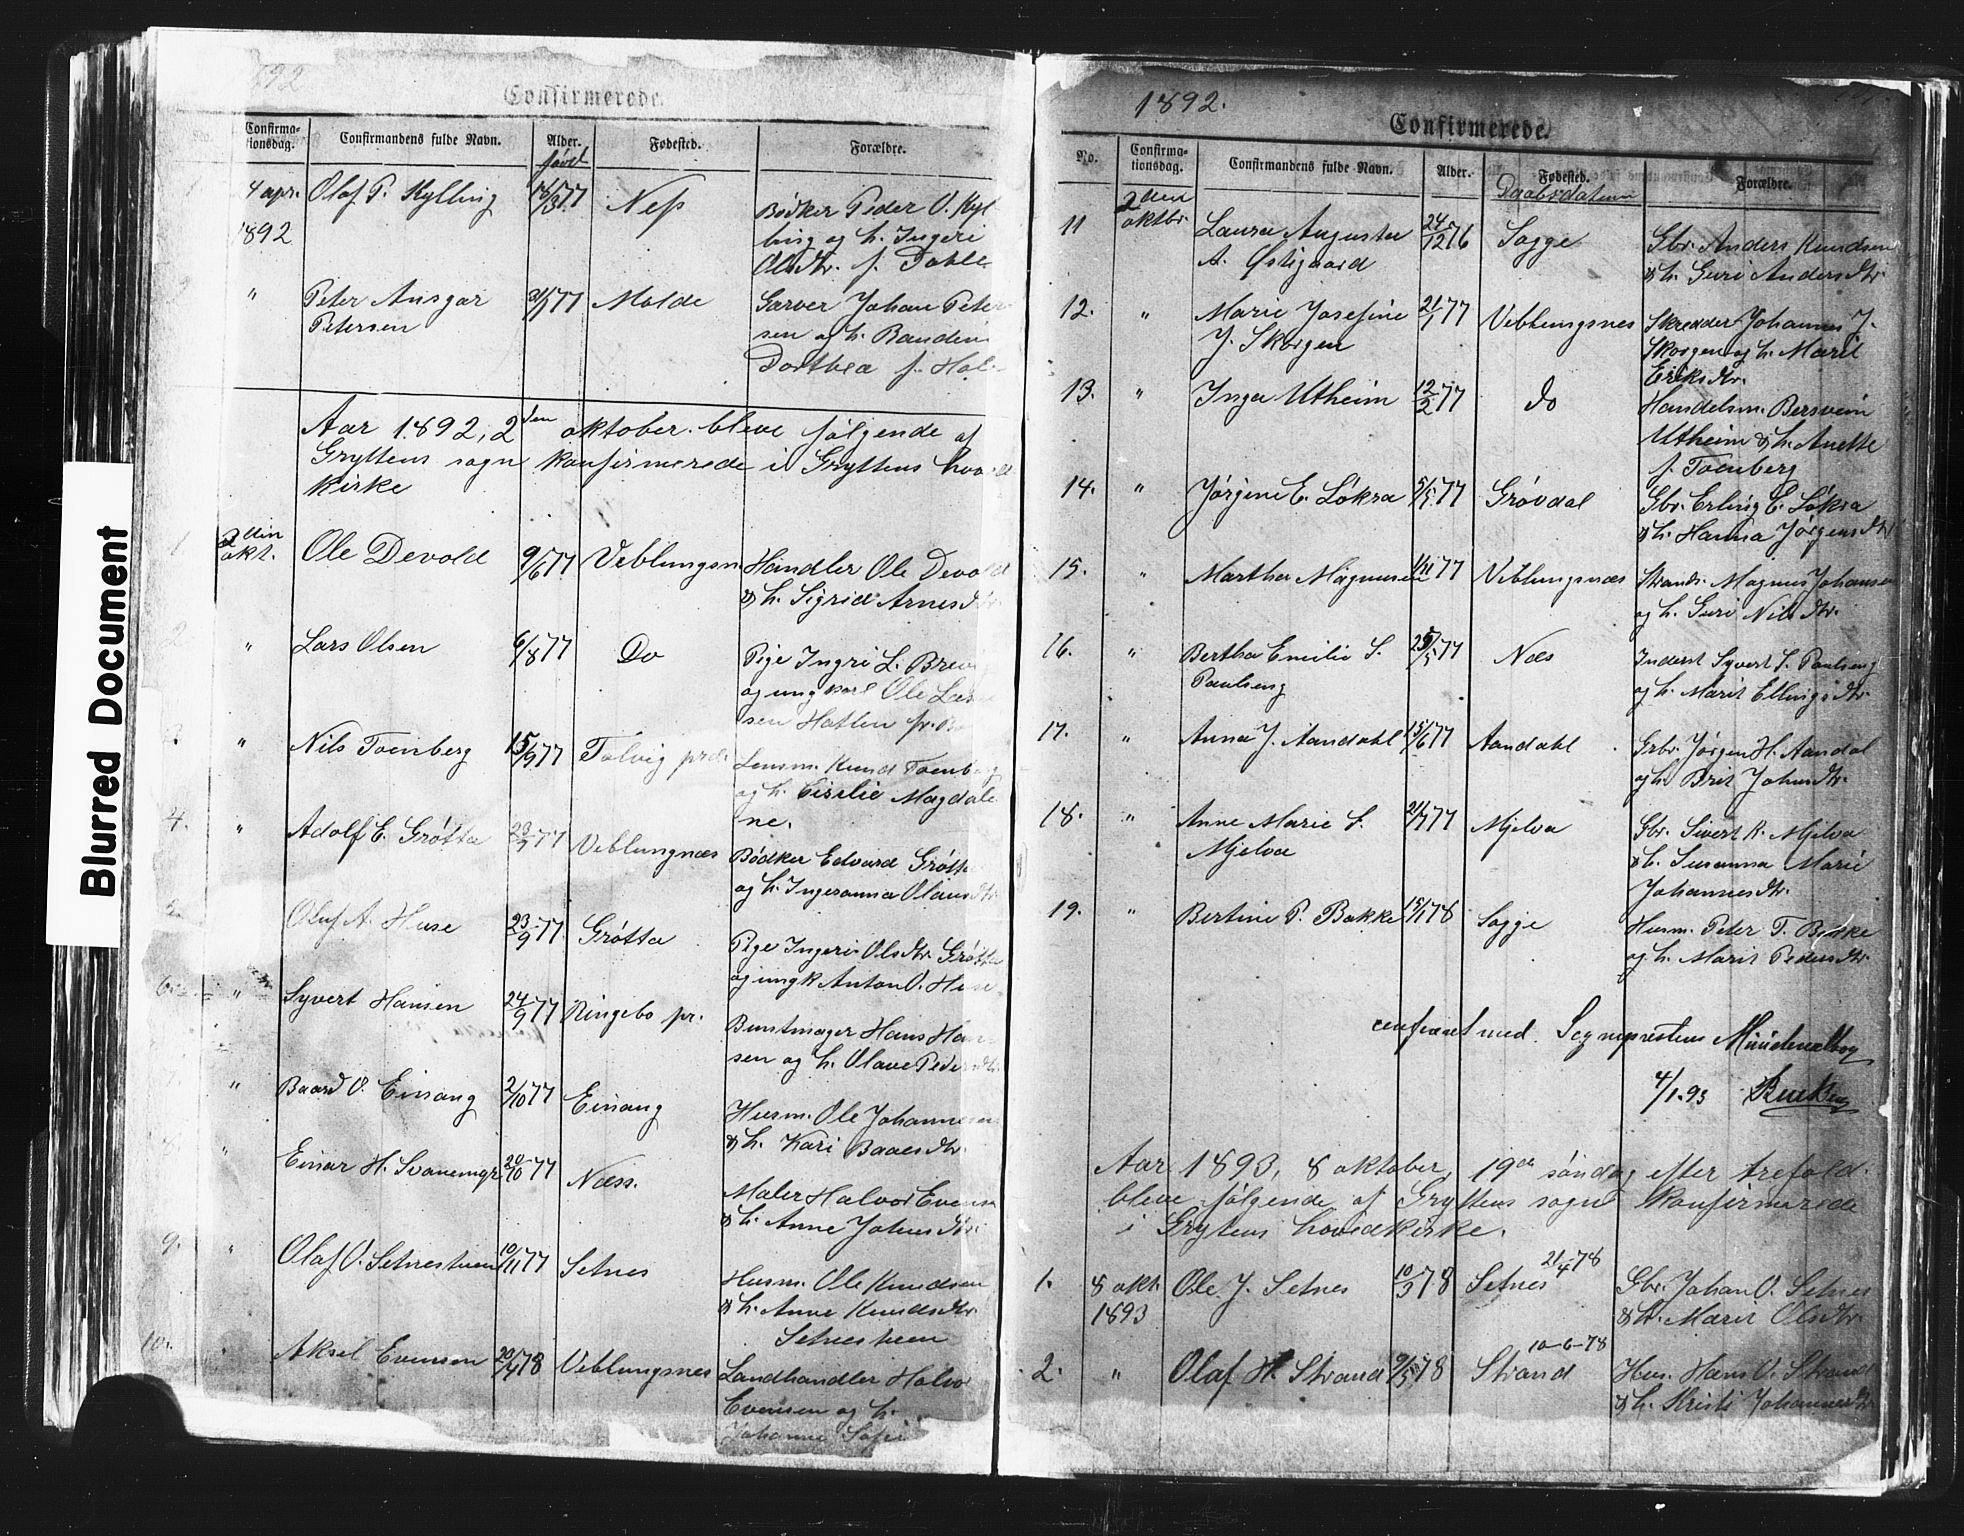 Blurred Document
1892
Confirmerede.
No.
Confirma-
tionsdag.
Confirmandens fulde Navn.
Alder.
født
Fødested.
Forældre.
4 apr. Olaf P. Kylling 18/3 77 Neß Bødker Peder O. Kyl-
1892 ling og h. Ingeri
Olsdtr. f. Dahle
2 " Peter Ansgar 77 Molde Garver Johan Peter-
Petersen sen og h. Randine
Dorthea f. Hol-
Aar 1892, 2den oktober bleve følgende af
Gryttens sogn konfirmerede i Gryttens hoved
kirke
1 2den
okt. Ole Devold 9/6 77 Veblungsn Handler Ole Devold
& h. Sigrid Arnesdtr.
2 " Lars Olsen 6/8 77 Do Pige Ingri L. Brevig
og ungkarl Ole Lar
sen Hatlen
3. " Nils Toenberg 15/9 77 Talvig prd. Lensm. Knud Toenberg
og h. Cisilie Magdale
ne.
4. " Adolf E. Grøtta 77 Veblungnæs Bødker Edvard Grøtta
og h. Ingeranna Olausdtr
5. Oluf A. Huse 23/9 77 Grøtta Pige Ingeri Olsdtr. Grøtta
og ungk Anton O. Huse
6. " Syvert Hansen 24/9 77 Ringebo pr. Buntmager Hans Han-
sen og h. Olave Pedersdtr
7. " Baard O. Einang 2/10 77 Einang Husm. Ole Johannesen
& h. Kari Baardsdtr.
8. " Einar H. Svanemyr 20/10 77 Næss. Maler Halvor Evensen
& h. Anne Johnsdtr.
9. " Olaf O. Setnestuen 10/11 77 Setnes Husm. Ole Knudsen
& h. Anne Knudsdtr.
Setnestuen
10. " Aksel Evensen 78 Veblungsnes Landhandler Halvor
Evensen og h.
Johanne Sofie
1892.
Confirmerede.
No.
Confirma-
tionsdag.
Confirmandens fulde Navn.
Alder.
Fødested.
Daabsdatum
Forældre.
11 2den
oktbr. Laura Augusta 24/12 76 Sogge Gbr. Anders Knudsen
A. Østigaard & h. Guri Andersdtr.
12. " Marie Josefine 21/1 77 Veblungsnes Skredder Johannes J.
J. Skorgen Skorgen og h. Marit
Eriksdtr.
13. " Inga Utheim 12/2 77 do Handelsm. Bersvein
Utheim & h. Anette
f. Toenberg
14. " Jørgine E. Løkra 5/5 77 Grøvdal Gbr. Erling E. Løkra
& h. Hanna Jørgensdtr
15. " Martha Magnusen 77 Veblungsnæs Strands. Magnus Johansen
og h. Guri Nilsdtr.
16. " Bertha Emilie S. 77 Næs Inderst Syvert S. Paulseng
Paulseng og h. Marit Ellingsdtr.
17. " Anna J. Aandahl 15/6 77 Aandahl Gbr. Jørgen H. Aandal
og h. Brit Johnsdtr.
18. " Anne Marie S. 21/7 77 Mjelva Gbr. Sivert K. Mjelva
Mjelva & h. Susanna Marie
Johannesdtr.
19. " Bertine P. Bakke 15/1 78 Sogge Husm. Peter T. Bakke
og h. Marit Pedersdtr.
confereret med Sogneprestens Ministerialbog
4/1.93
Aar 1893, 8 oktober, 19de søndag efter trefold.
bleve følgende af Gryttens sogn konfirmerede
i Grytens hovedkirke.
21/4 78
1. 8 okt. Ole J. Setnes 10/3 78 Setnes Gbr. Johan O. Setnes
1893 & h. Marit Olsdtr.
10-6-78
2. " Olaf H. Strand 9/5 78 Strand Hus. Hans O. Strand
& h. Kristi Johannesdtr